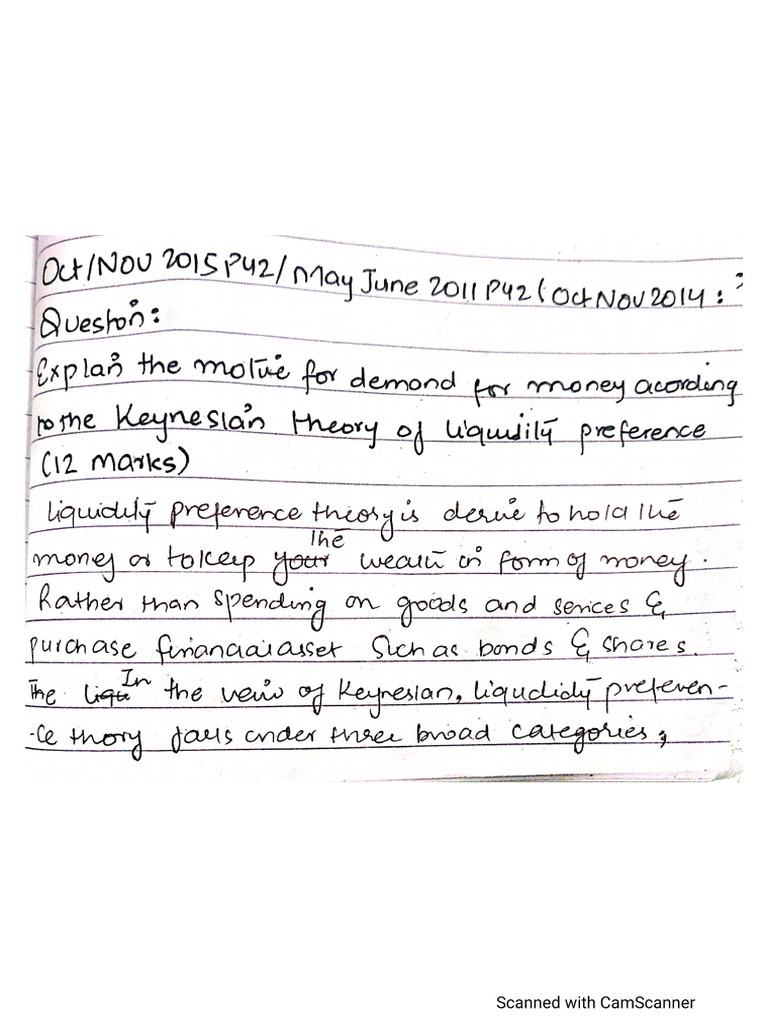 Oct/Nov 2015 P42/ May June 2011 P42 ( Oct Nov 2014 :
Question:
Explain the motive for demand for money acording
to the Keynesian theory of liquidity preference
(12 marks)
liquidity preference theory is desire to hold the
the
money or to keep your wealth in form of money.
Rather than spending on goods and services &
purchase financial asset such as bonds & shares.
The liqu In the veiw of Keynesian, liqudidy preferen-
-ce thory falls under three broad categories;
Scanned with CamScanner